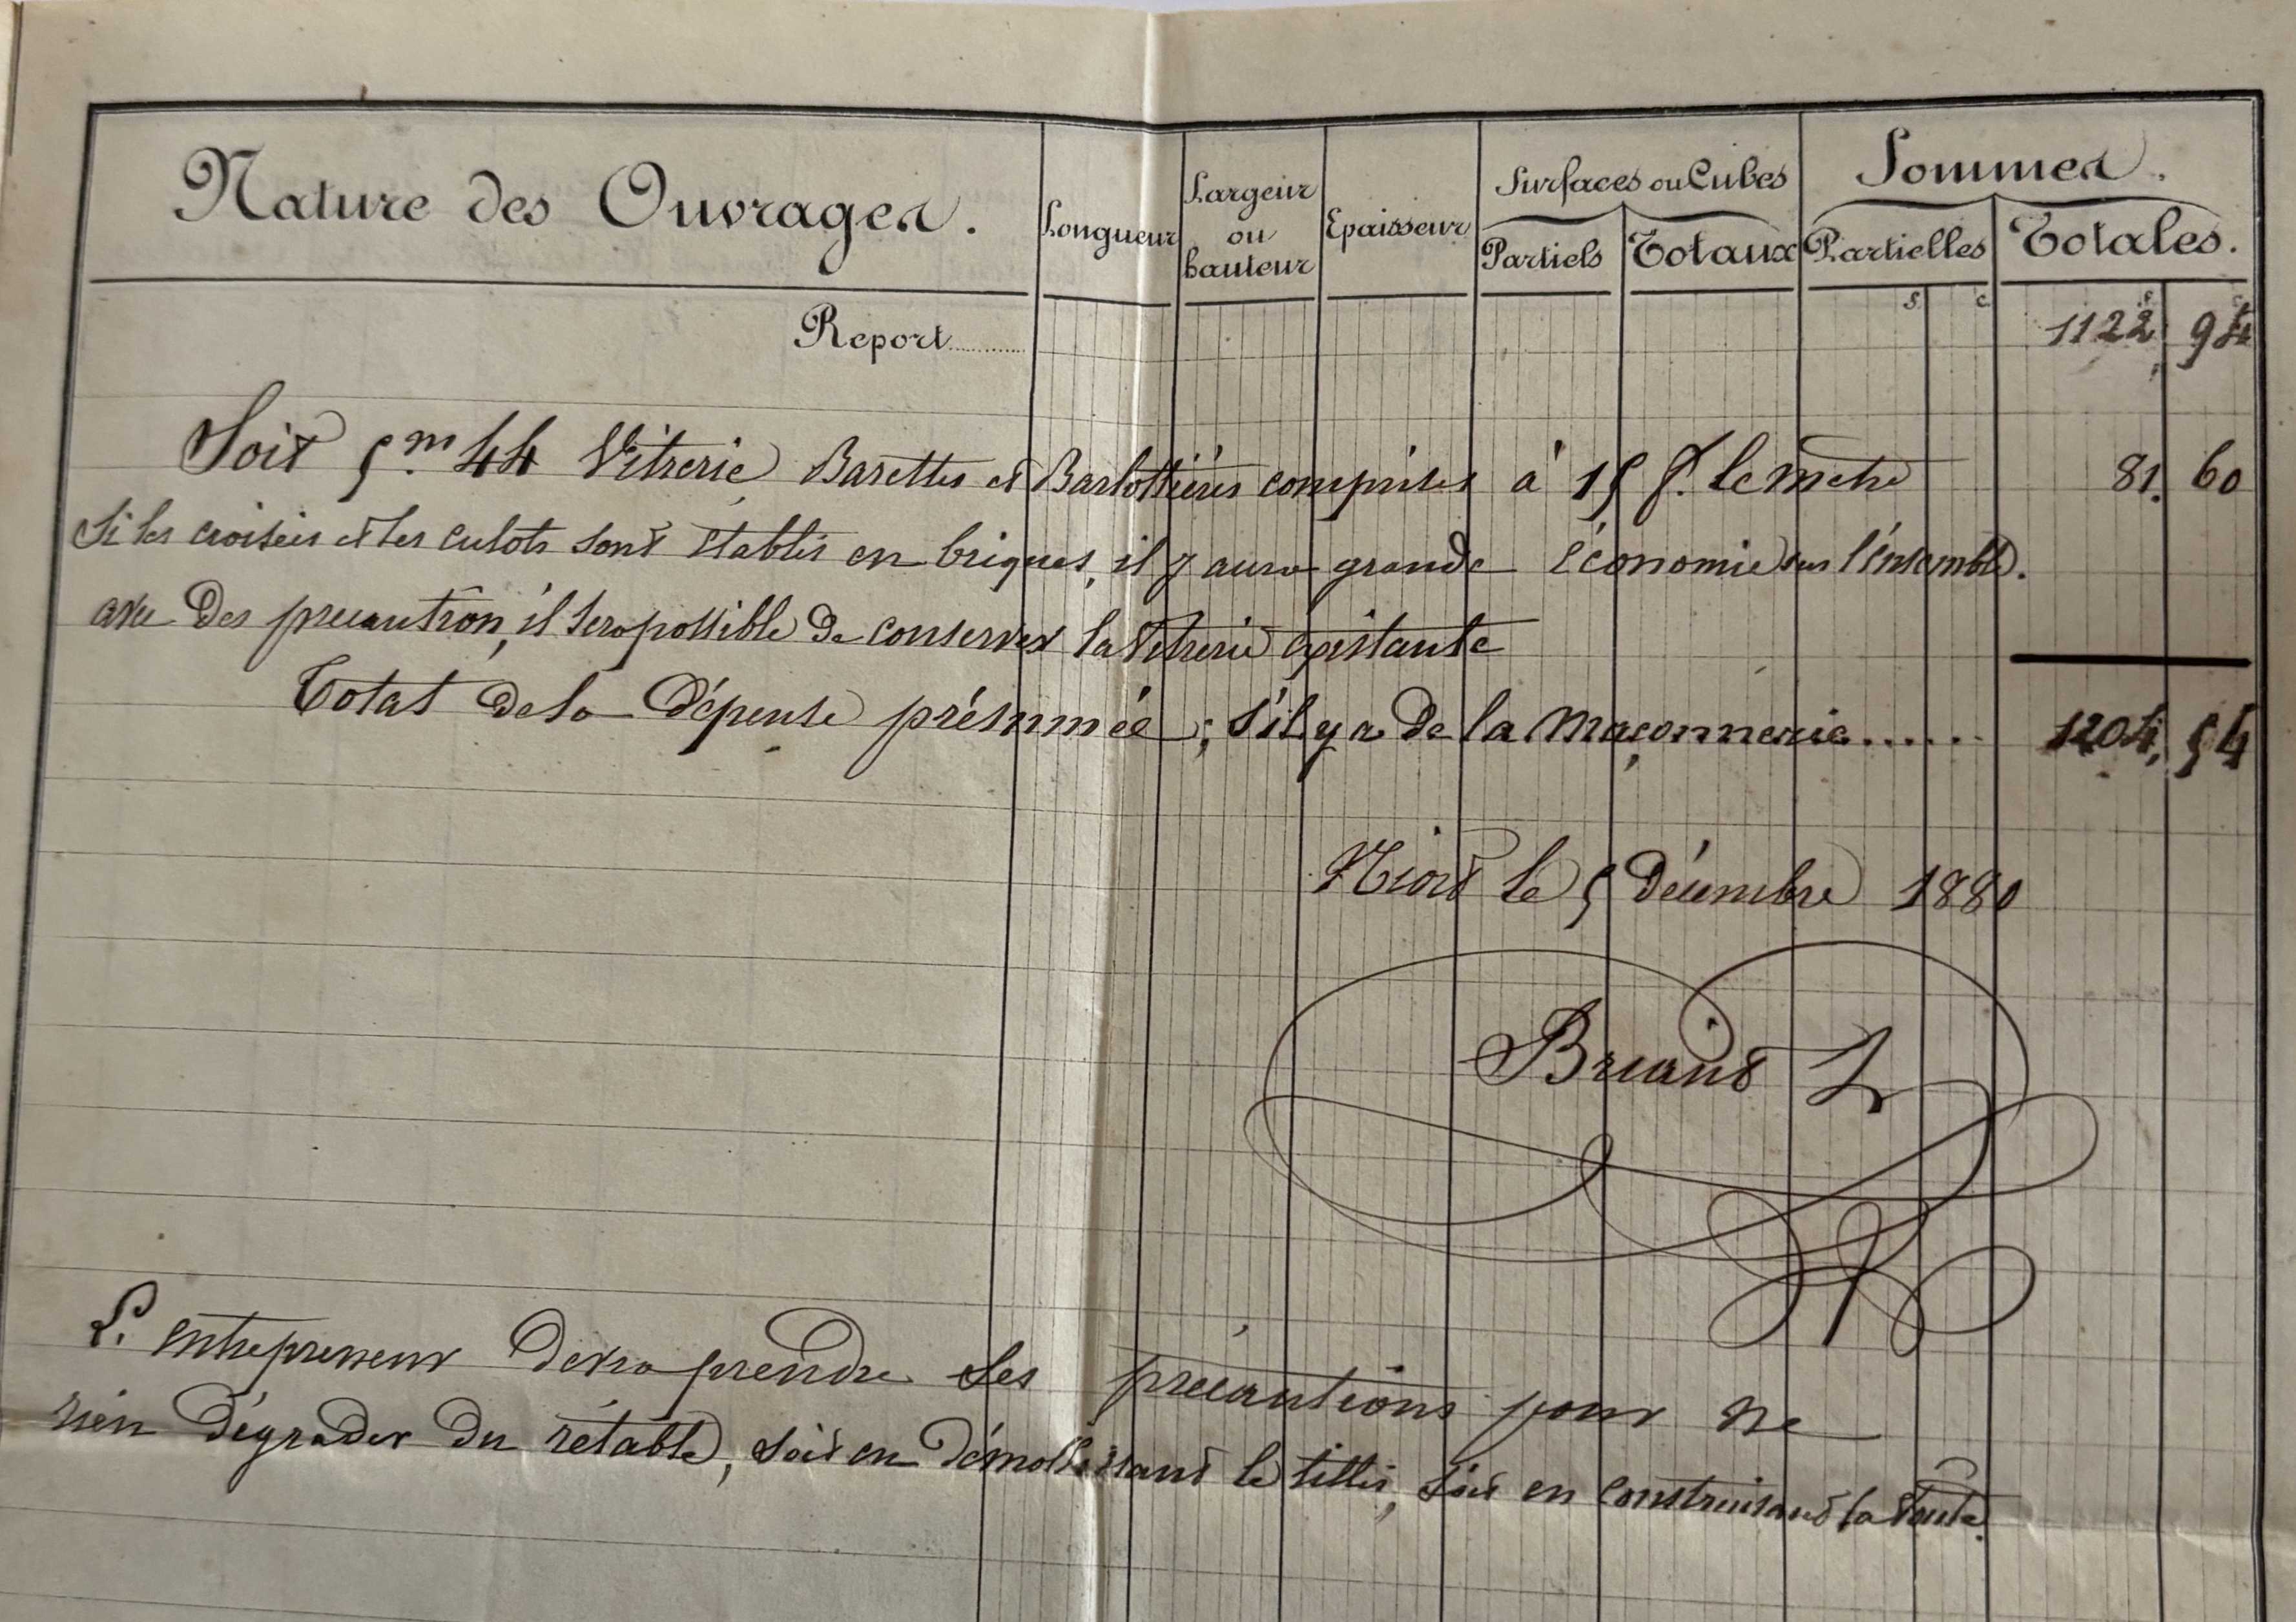 Nature des Ouvrages.
Longueur
Largeur
ou
hauteur
Epaisseur
Surfaces ou Cubes
Partiels
Totaux
Sommes.
Partielles
Totales.
f. c. f. c.
Report............ 1122 94
Soit 5m. 44 Vitrerie Barettes et Barlottières comprises à 15 f. le mètre 81. 60
Si les croisées et les culots sont établis en briques, il y aura grande économie sur l'ensemble.
avec des precaution, il sera possible de conserver la Vitrerie existante
Total de la Dépense présumée ; s'il y a de la Maçonnerie...... 1204, 54
Niort le 5 décembre 1880
Briand L
L'entrepreneur devra prendre ses précautions pour ne
rien dégrader du rétable, soit en démolissant le tillis, soit en construisant la Voute.